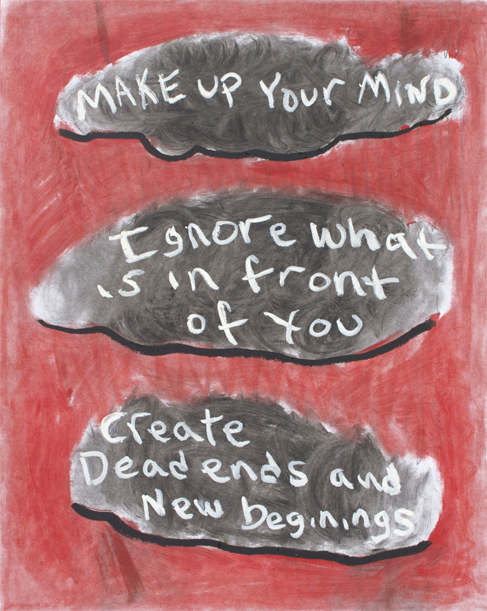 MAKE UP YOUR MIND
Ignore what
is in front
of You
Create
Dead ends and
New beginings